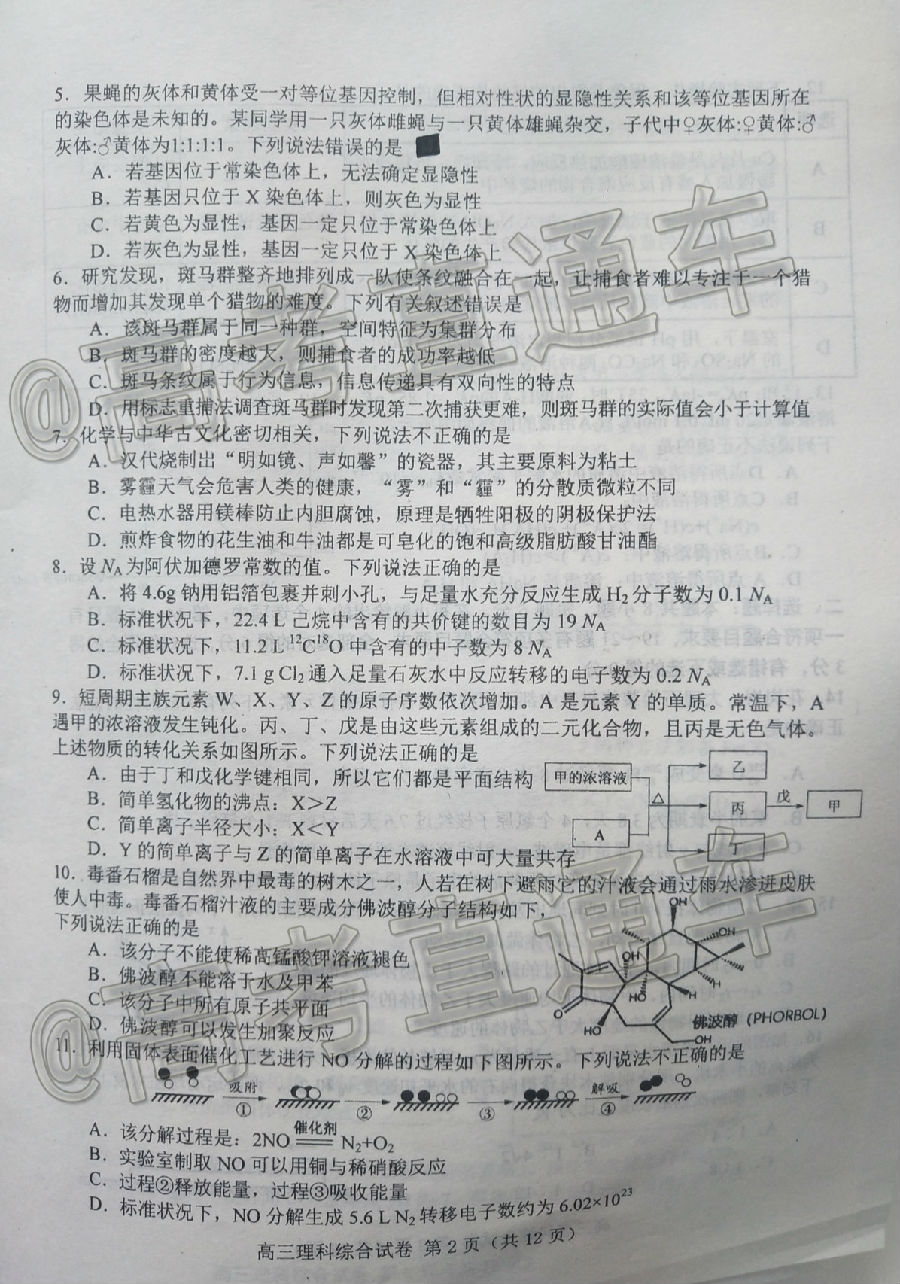 5．果蝇的灰体和黄体受一对等位基因控制，但相对性状的显隐性关系和该等位基因所在
的染色体是未知的。某同学用一只灰体雌蝇与一只黄体雄蝇杂交，子代中♀灰体:♀黄体:♂
灰体:♂黄体为1:1:1:1。下列说法错误的是
A．若基因位于常染色体上，无法确定显隐性
B．若基因只位于 X 染色体上，则灰色为显性
C．若黄色为显性，基因一定只位于常染色体上
D．若灰色为显性，基因一定只位于 X 染色体上
6．研究发现，斑马群整齐地排列成一队使条纹融合在一起，让捕食者难以专注于一个猎
物而增加其发现单个猎物的难度。下列有关叙述错误是
A．该斑马群属于同一种群，空间特征为集群分布
B．斑马群的密度越大，则捕食者的成功率越低
C．斑马条纹属于行为信息，信息传递具有双向性的特点
D．用标志重捕法调查斑马群时发现第二次捕获更难，则斑马群的实际值会小于计算值
7．化学与中华古文化密切相关，下列说法不正确的是
A．汉代烧制出“明如镜、声如馨”的瓷器，其主要原料为粘土
B．雾霾天气会危害人类的健康，“雾”和“霾”的分散质微粒不同
C．电热水器用镁棒防止内胆腐蚀，原理是牺牲阳极的阴极保护法
D．煎炸食物的花生油和牛油都是可皂化的饱和高级脂肪酸甘油酯
8．设 NA为阿伏加德罗常数的值。下列说法正确的是
A．将 4.6g 钠用铝箔包裹并刺小孔，与足量水充分反应生成 H₂ 分子数为 0.1 NA
B．标准状况下，22.4 L 己烷中含有的共价键的数目为 19 NA
C．标准状况下，11.2 L ¹²C¹⁸O 中含有的中子数为 8 NA
D．标准状况下，7.1 g Cl₂ 通入足量石灰水中反应转移的电子数为 0.2 NA
9．短周期主族元素 W、X、Y、Z 的原子序数依次增加。A 是元素 Y 的单质。常温下，A
遇甲的浓溶液发生钝化。丙、丁、戊是由这些元素组成的二元化合物，且丙是无色气体。
上述物质的转化关系如图所示。下列说法正确的是
A．由于丁和戊化学键相同，所以它们都是平面结构
B．简单氢化物的沸点：X＞Z
C．简单离子半径大小：X＜Y
D．Y 的简单离子与 Z 的简单离子在水溶液中可大量共存
甲的浓溶液
A
△
乙
丙
戊
甲
丁
10．毒番石榴是自然界中最毒的树木之一，人若在树下避雨它的汁液会通过雨水渗进皮肤
使人中毒。毒番石榴汁液的主要成分佛波醇分子结构如下，
下列说法正确的是
A．该分子不能使稀高锰酸钾溶液褪色
B．佛波醇不能溶于水及甲苯
C．该分子中所有原子共平面
D．佛波醇可以发生加聚反应
OH
OH
H
HO
H
H
O
HO
HO
OH
佛波醇（PHORBOL）
11．利用固体表面催化工艺进行 NO 分解的过程如下图所示。下列说法不正确的是
吸附
①
②
③
解吸
④
A．该分解过程是：2NO 催化剂 N₂+O₂
B．实验室制取 NO 可以用铜与稀硝酸反应
C．过程②释放能量，过程③吸收能量
D．标准状况下，NO 分解生成 5.6 L N₂ 转移电子数约为 6.02×10²³
高三理科综合试卷 第 2 页（共 12 页）
@高考直通车
@高考直通车